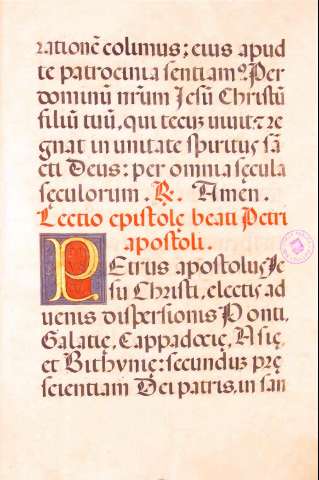 rationē colimus; eius apud
te patrocinia sentiamꝰ. Per
dominū nr̄um Jesū Christū
filiū tuū, qui tecuʒ uiuit: ⁊ re
gnat in unitate spirituſ sā
cti Deus: per omnia sęcula
sęculorum. ℟. Amen.
Lectio epistolę beati Petri
apostoli.
PEtrus apostolus Je
su Christi, electis ad
uenis dispersionis Ponti,
Galatię, Cappadocię, Asię,
et Bithynię: secunduʒ prę
scientiam Dei patris, in san